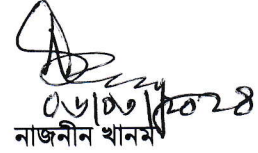 ০৬/০৩/২০২৪
নাজনীন খানম